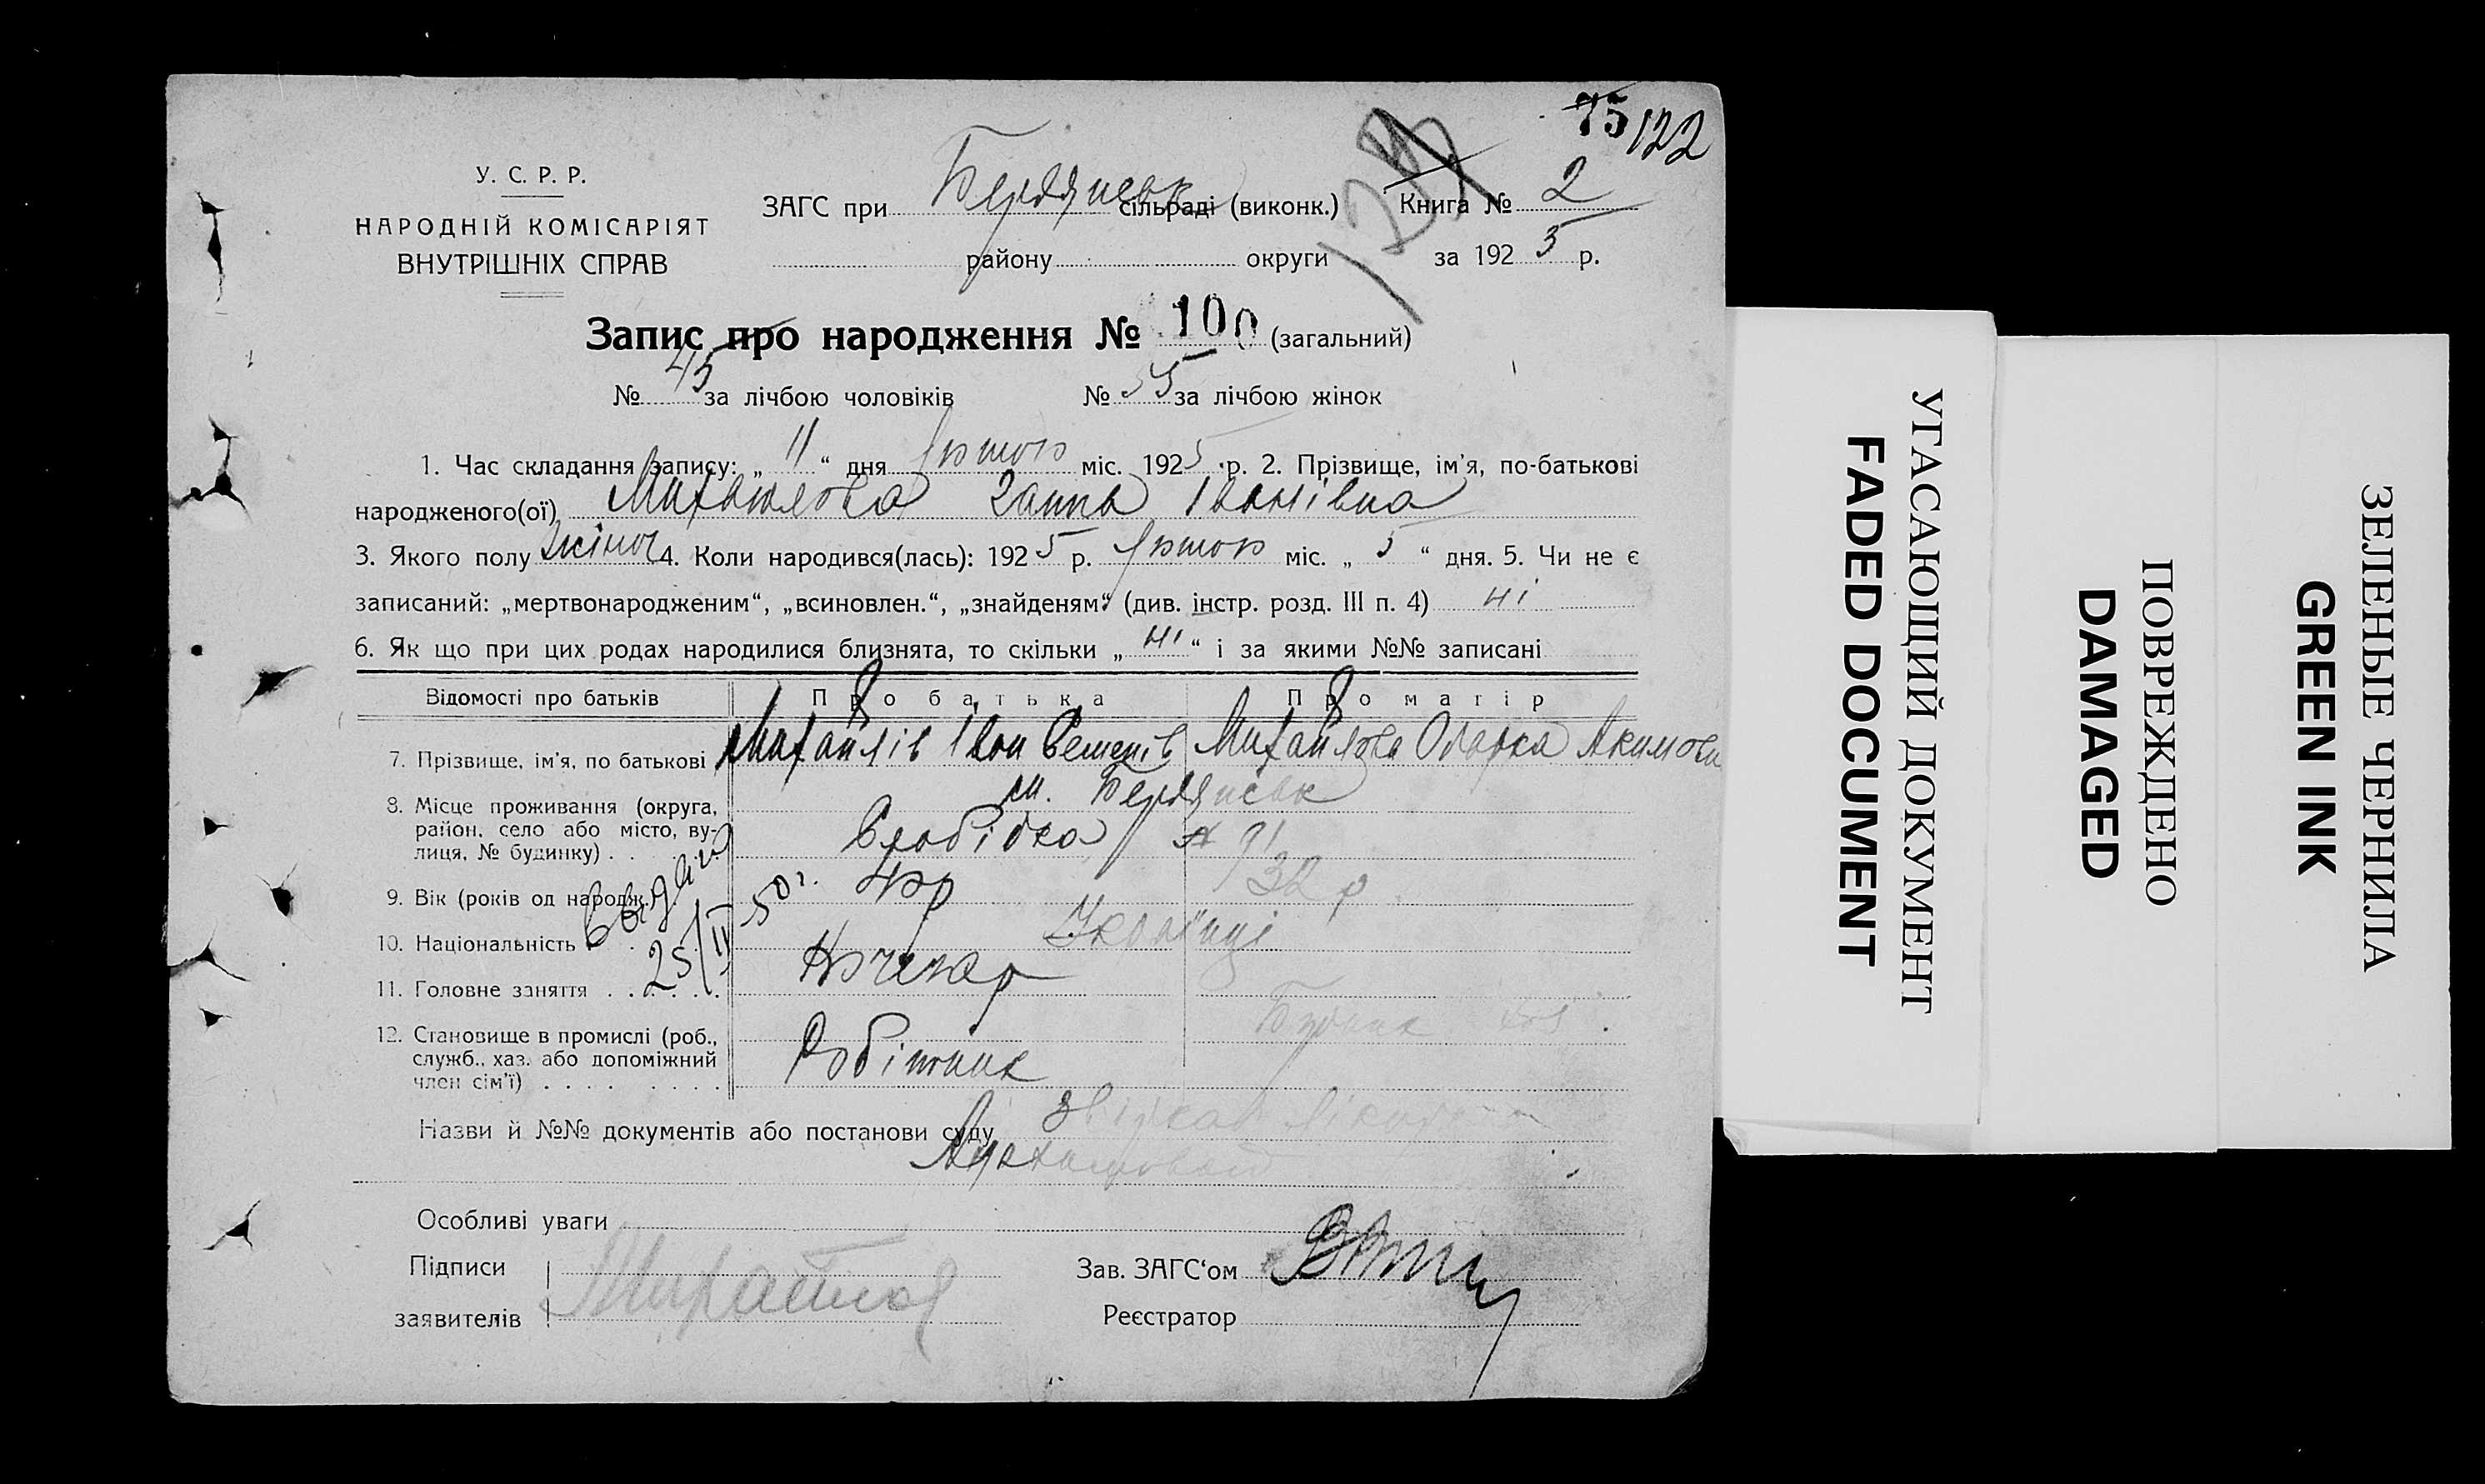 75 122
У. С. Р. Р.
НАРОДНІЙ КОМІСАРІЯТ
ВНУТРІШНІХ СПРАВ
ЗАГС при Бердянськ сільраді (виконк.) Книга № 2
району округи за 1925 р.
Запис про народження № 100 (загальний)
№ 45 за лічбою чоловіків № 55 за лічбою жінок
1. Час складання запису: „ 11 “ дня міс. 1925 р. 2. Прізвище, ім'я, по-батькові
народженого(ої) Михайлова Ганна Іванівна
3. Якого полу жіноч 4. Коли народився(лась): 1925 р. міс. „ 5 “ дня. 5. Чи не є
записаний: „мертвонародженим“, „всиновлен.“, „знайденям“ (див. інстр. розд. III п. 4) ні
6. Як що при цих родах народилися близнята, то скільки „ ні “ і за якими №№ записані
Відомості про батьків Про батька Про матір
7. Прізвище, ім'я, по батькові Михайлів Іван Михайлова Одарка Акимовн
8. Місце проживання (округа, м. Бердянськ
район, село або місто, ву-
лиця, № будинку) . . Слобідка № 91
9. Вік (років од народж.) 40р 32 р
10. Національність Українці
Выдан
25/IV 50 г.
11. Головне заняття . . . . . . Кочегар
12. Становище в промислі (роб.,
служб., хаз. або допоміжний Робітник
член сім'ї) . . . . . . . .
Назви й №№ документів або постанови суду
Особливі уваги
Підписи
заявителів
Зав. ЗАГС‘ом
Реєстратор
УГАСАЮЩИЙ ДОКУМЕНТ
FADED DOCUMENT
ПОВРЕЖДЕНО
DAMAGED
ЗЕЛЕНЫЕ ЧЕРНИЛА
GREEN INK